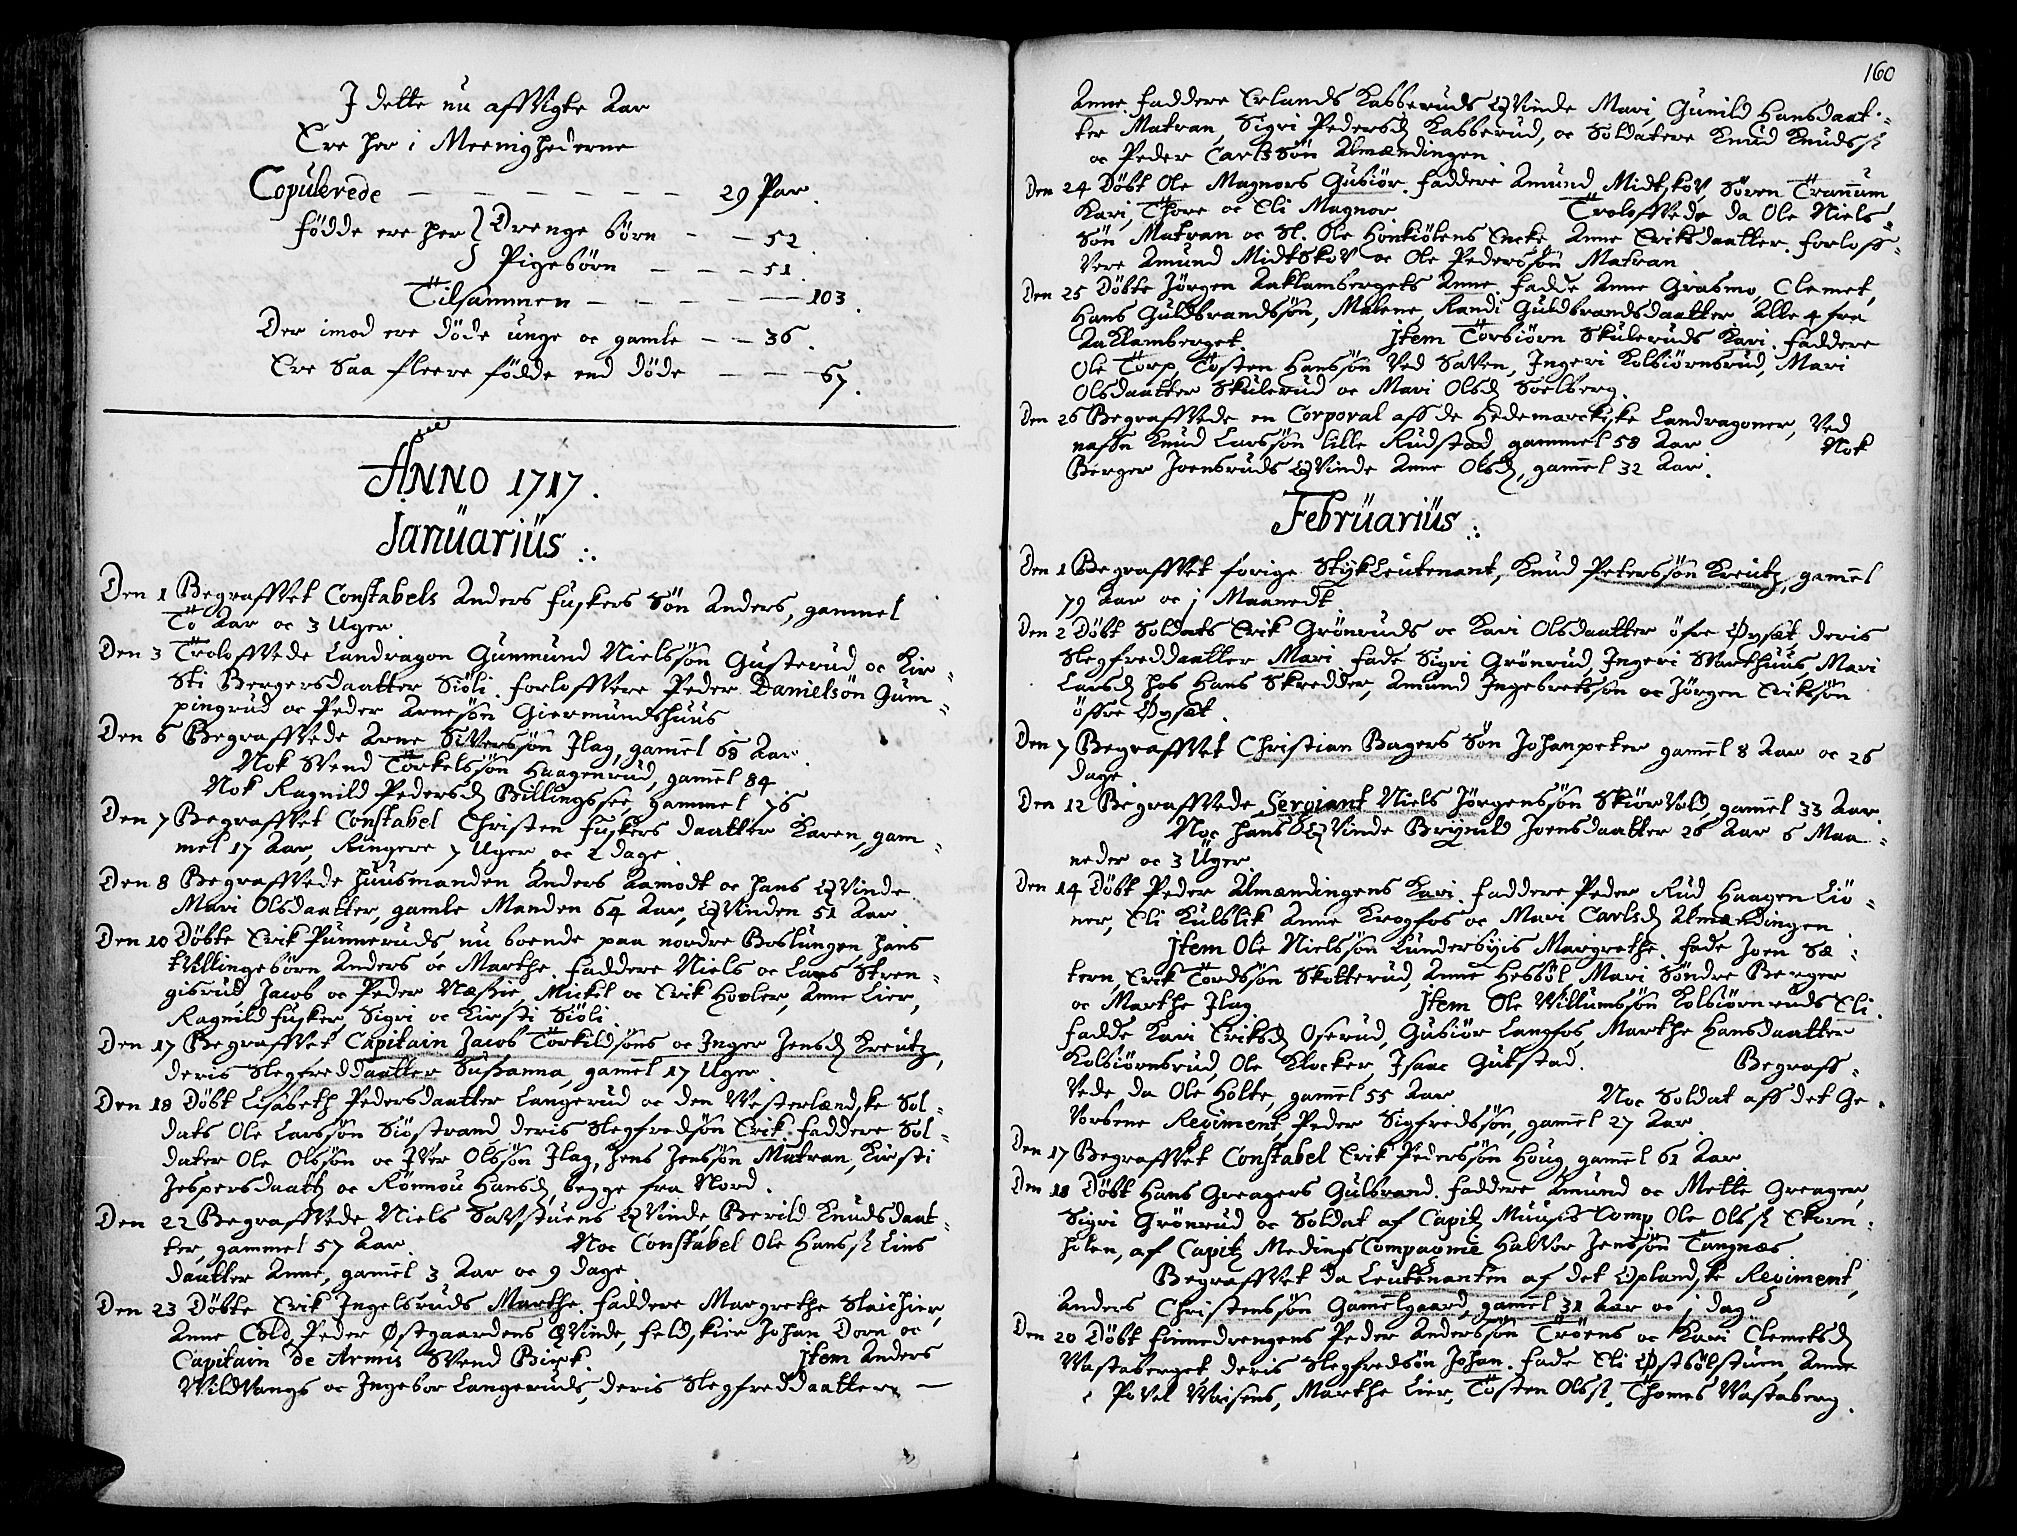 I dette nu affVigte Aar
Ere her i Meenighederne
Copulerede — — — — — — — 29 Par.
fødde ere her } Drenge børn — — 52.
} Pigebørn — — — 51.
Tilsammen — — — — — 103.
Der imod ere døde unge oc gamle — — 36.
Ere Saa fleere fødde end døde — — — 67.
ANNO 1717.
Januarius.
Den 1 BegraffVet Constabels Anders Fuskers Søn Anders, gammel
To Aar oc 3 Uger
Den 3 TroloffVede Landragon Gunmund Nielssøn Gusterud oc Kir=
sti Bergersdaatter Siøli. forloffVere Peder Danielsøn Gum=
pingrud oc Peder Arnesøn Giermundshuus
Den 6 BegraffVede Arne SiVerssøn Ilag, gamel 68 Aar.
Nok SVend Torkelssøn Haagenrud, gamel 84
Nok Ragnild Pedersd Billingssee gammel 76.
Den 7 BegraffVet Constabel Christen Fuskers daatter Karen, gam=
mel 17 Aar, Ringere 7 Uger oc 2 dage.
Den 8 BegraffVede Huusmanden Anders Aamodt oc hans QVinde
Mari Olsdaatter, gamle Manden 64 Aar, QVinden 51 Aar
Den 10 Døbte Erik Punneruds nu boende paa nordre Boslungen hans
tVillingebørn Anders oc Marthe. faddere Niels oc Lars Stren=
gisrud, Jacob oc Peder Næssie, Mickel oc Erik Holer, Anne Lier,
Ragnild Fusker, Sigri oc Kirsti Siøli
Den 17 BegraffVet Capitain Jacob Torkildsøns oc Inger Jensd Kreutz,
deris Slegfreddaatter Sussanna, gamel 17 Uger.
Den 18 Døbt Lisabeth Pedersdaatter Langerud oc den Vesterlændske Sol=
dats Ole Larssøn Siøstrand deris Slegfredsøn Erik. faddere Sol=
dater Ole Olssøn oc IVer Olssøn Ilag, Jens Jenssøn Matran, Kirsti
Jespersdaatt oc Rønnou Hansd, begge fra Nord.
Den 22 BegraffVede Niels SaVstuens QVinde Berild Knudsdaat=
ter, gammel 57 Aar. Noc Constabel Ole Hanss Eins
daatter Anne, gamel 3 Aar oc 9 dage
Den 23 Døbte Erik Ingelsruds Marthe. faddere Margrethe Slaichier,
Anne Cold, Peder Østgaardens QVinde, feldskier Johan Dorn oc
Capitain de Armis SVend Birk. Item Anders
VildVangs oc Ingebor Langeruds, deris Slegfreddaatter —
160
Anne. faddere Erlands Kabberuds QVinde Mari, Gunild Hansdaat=
ter Matran, Sigri Pedersd Kabberud, oc Soldatere Knud Knuds
oc Peder Carlssøn Almændingen.
Den 24 Døbt Ole Magnors Gubiør. faddere Amund MidtskoV, Søren Tranum
Kari, Thore oc Eli Magnor. TroloffVede da Ole Niels=
søn Matran oc Sl. Ole Honkiølens Encke Anne Eriksdaatter. forloff=
Vere Amund MidtskoV oc Ole Pederssøn Matran
Den 25 Døbte Jørgen Aaklambergets Anne. fadde Anne Grasmo, Clemet,
Hans Guldbrandssøn, Malene, Randi Guldbrandsdaatter alle 4 fra
Aaklamberget. Item Torbiørn Skuleruds Kari. faddere
Ole Torp, Tosten Hanssøn Ved SaVen, Ingeri Kolbiørnsrud, Mari
Olsdaatter Skulerud oc Mari Olsd Soelberg.
Den 26 BegraffVede en Corporal aff de Hedemarckiske Landragoner, Ved
nafn Knud Larssøn lille Rudstad gammel 58 Aar Nok
Berger Joensruds QVinde Anne Olsd, gamel 32 Aar.
Februarius.
Den 1 BegraffVet forige Stykleutenant, Knud Peterssøn Kreutz, gamel
79 Aar oc 1 Maanedt
Den 2 Døbt Soldats Erik Grønruds oc Kari Olsdaatter øfre Øyset deris
Slegfreddaatter Mari. fade Sigri Grønrud, Ingeri Varthuus, Mari
Larsd hos Hans Skredder, Amund Ingebretssøn oc Jørgen Erikssøn
øffre Øyset.
Den 7 BegraffVet Christian Bagers Søn Johanpeter gamel 8 Aar oc 26
dage.
Den 12 BegraffVede Sergiant Niels Jørgenssøn SkiørVold, gamel 33 Aar.
Noc hans QVinde Brynild Joensdaatter 26 Aar 6 Maa=
neder oc 3 Uger.
Den 14 Døbt Peder Almændingens Kari. faddere Peder Rud Haagen Liø=
ner, Eli Kulblik Anne Krogfos oc Mari Carlsd Almændingen
Item Ole Nielssøn Lundersbyis Margrethe. fade Joen Sæ=
tern, Erik Tordssøn Skotterud, Anne Hesbøl, Mari Søndre Berger
oc Marthe Ilag. Item Ole Villumssøn Kolbiørnruds Eli.
fadde Kari Eriksd Oserud, Gubiør Langfos, Marthe Hansdaatter
Kolbiørnsrud, Ole Klocker, Isaac Gulstad. Begraff=
Vede da Ole Holte, gamel 55 Aar Noc Soldat aff det Ge=
Vorbene Regiment, Peder Sigfredssøn, gamel 27 Aar.
Den 17 BegraffVet Constabel Erik Pederssøn Houg, gamel 61 Aar
Den 18 Døbt Hans Greagers Gulbrand. faddere Amund oc Mette Greager,
Sigri Grønrud oc Soldat af Capit Muusis Comp. Ole Ols Ekorn=
holen, af Capit Medings Compagnie HalVor Jenssøn Tangnæs.
BegraffVet da Leutenanten af det Oplandske Regiment,
Anders Christenssøn Gamelgaard, gamel 31 Aar oc 1 dag
Den 20 Døbt finnedrengens Peder Anderssøn Troens oc Kari Clemetsd
Vastaberget deris Slegfredsøn Johan. fade Eli Østbølstuen, Anne
PoVel Vaisens, Marthe Lier, Tosten Ols, Thomes Vastaberg.